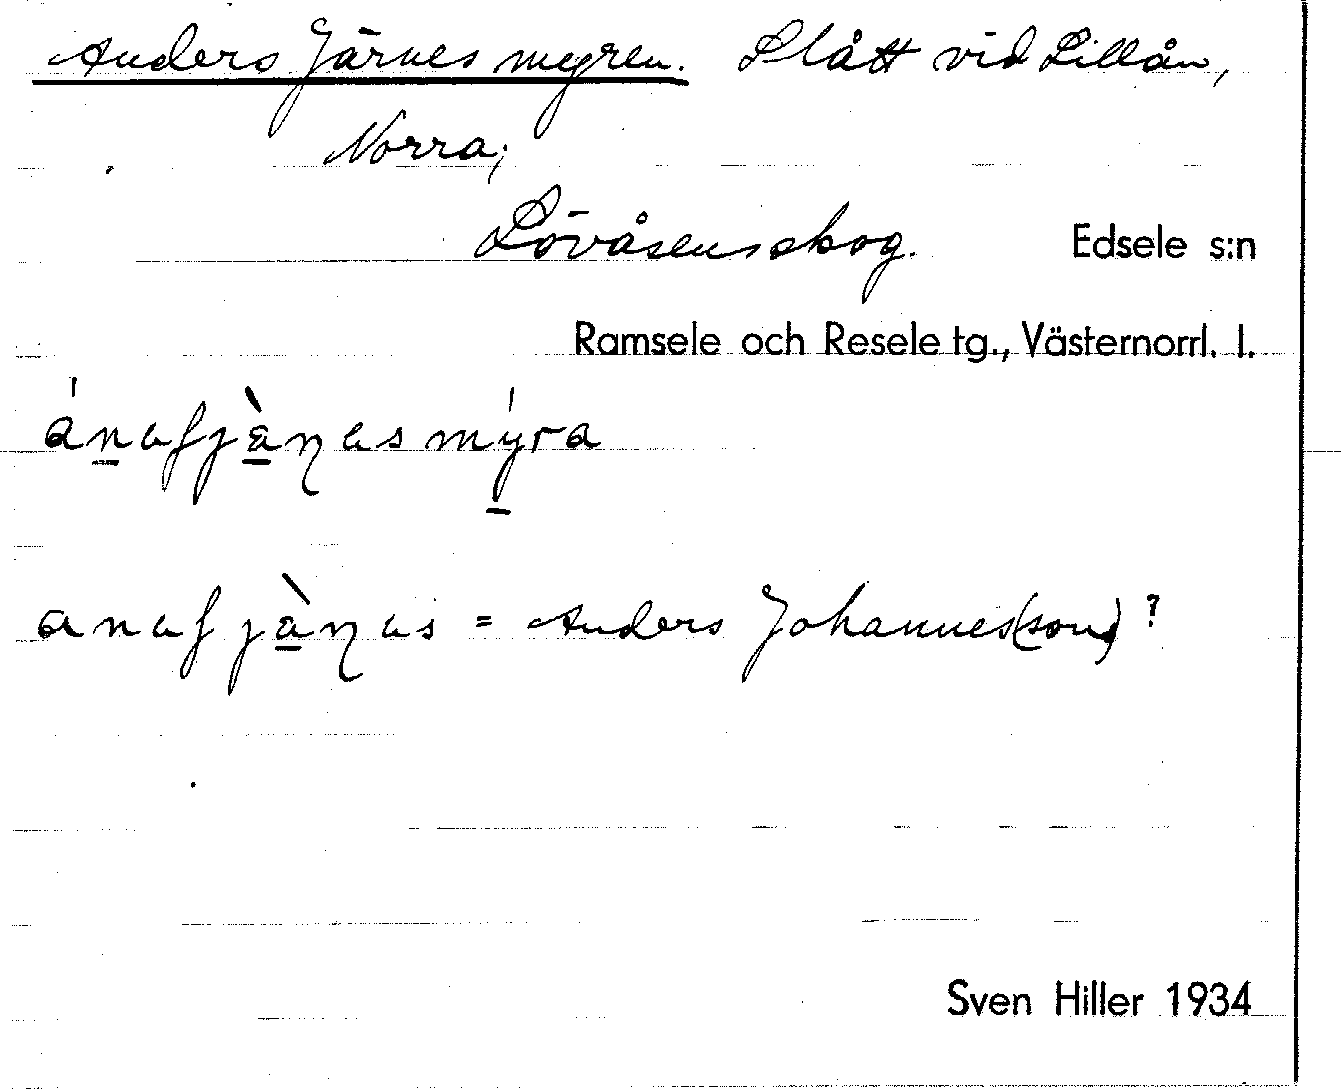 Anders Järnes myren. Slått vid Lillån,
Norra;
Lövåsens skog. Edsele s:n
Ramsele och Resele tg., Västernorrl. l.
= Anders Johannes(son) ?
Sven Hiller 1934